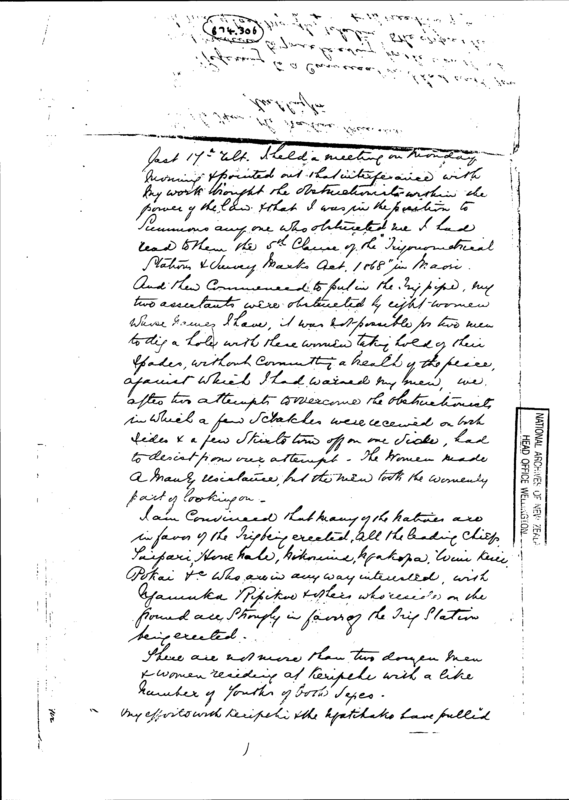 674.306
last 17th Ult. I held a meeting on Monday
morning & pointed out that interference with
my work brought the obstructionists within the
power of the law & that I was in the position to
Summons any one who obstructed me I had
read to them the 5th Clause of the "Trigonometrical
Stations & Survey Marks Act. 1868" in Maori.
And then Commenced to put in the Trig pipe, my
two assistants were obstructed by eight women
whose names I have, it was not possible for two men
to dig a hole with these women taking hold of their
Spades, without Committing a breach of the peace,
against which I had warned my men, we
after two attempts to overcome the obstructionists
in which a few Scratches were received on both
Sides & a few Skirts torn off on one Side, had
to desist from our attempt. The Women made
a manly resistance, but the men took the womenly
part of looking on.
I am Convinced that many of the natives are
in favor of the Trig being erected, All the leading Chiefs
Taipari, Hore
Pokai &c who are in any way interested, with
Ripikoi & others who reside on the
ground are Strongly in favor of the Trig Station
being erected.
There are not more than two dozen men
& women residing at Kerepehi with a like
number of Youths of both Sexes.
My efforts with Kerepehi & the have
NATIONAL ARCHIVES OF NEW ZEALAND
HEAD OFFICE WELLINGTON